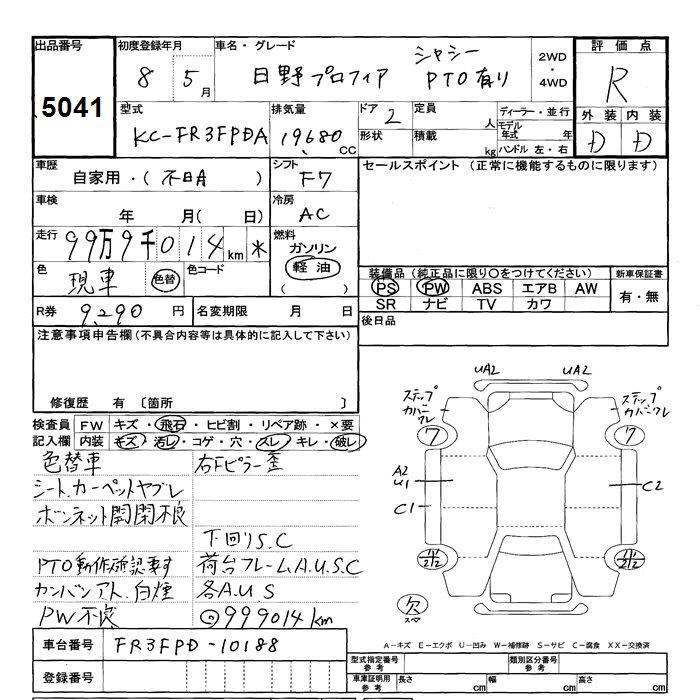 出品番号
5041
初度登録年月
8 5月
車名・グレード
日野プロフィア シャシー PTO有り
2WD
・
4WD
評価点
R
外装 内装
D D
型式
KC-FR3FPDA
排気量
19,680 CC
ドア 2
形状
定員 人
積載 kg
ディーラー・並行
モデル年式 年
ハンドル 左・右
車歴
自家用・( 不日A )
シフト
F7
セールスポイント (正常に機能するものに限ります)
車検
年 月( 日)
冷房
AC
走行
99万9千014km *
燃料
ガソリン
軽油
( )
色
現車 色替
色コード
装備品 (純正品に限り○をつけてください)
PS PW ABS エアB AW
SR ナビ TV カワ
新車保証書
有・無
R券 9,290 円
名変期限 月 日
後日品
注意事項申告欄(不具合内容等は具体的に記入して下さい)
修復歴 有 〔箇所 〕
検査員記入欄
FW キズ・飛石・ヒビ割・リペア跡・×要
内装 キズ・汚レ・コゲ・穴・スレ・キレ・破レ
色替車
右Fピラー歪
シート.カーペットヤブレ
ボンネット開閉不良
下回りS.C
PTO動作確認要す
荷台フレームA.U.S.C
カンバンアト.白煙
各A.U.S
PW不良
◎999014km
UA2 UA2
ステップカバーワレ
ステップカバーワレ
ワ ワ
A2
U1
C1
C2
11/2/2
11/2/2
欠
スペア
A-キズ E-エクボ U-凹み W-補修跡 S-サビ C-腐食 XX-交換済
車台番号 FR3FPD-10188
登録番号
型式指定番号 参考
類別区分番号 参考
車庫証明用 参考
長さ cm
幅 cm
高さ cm